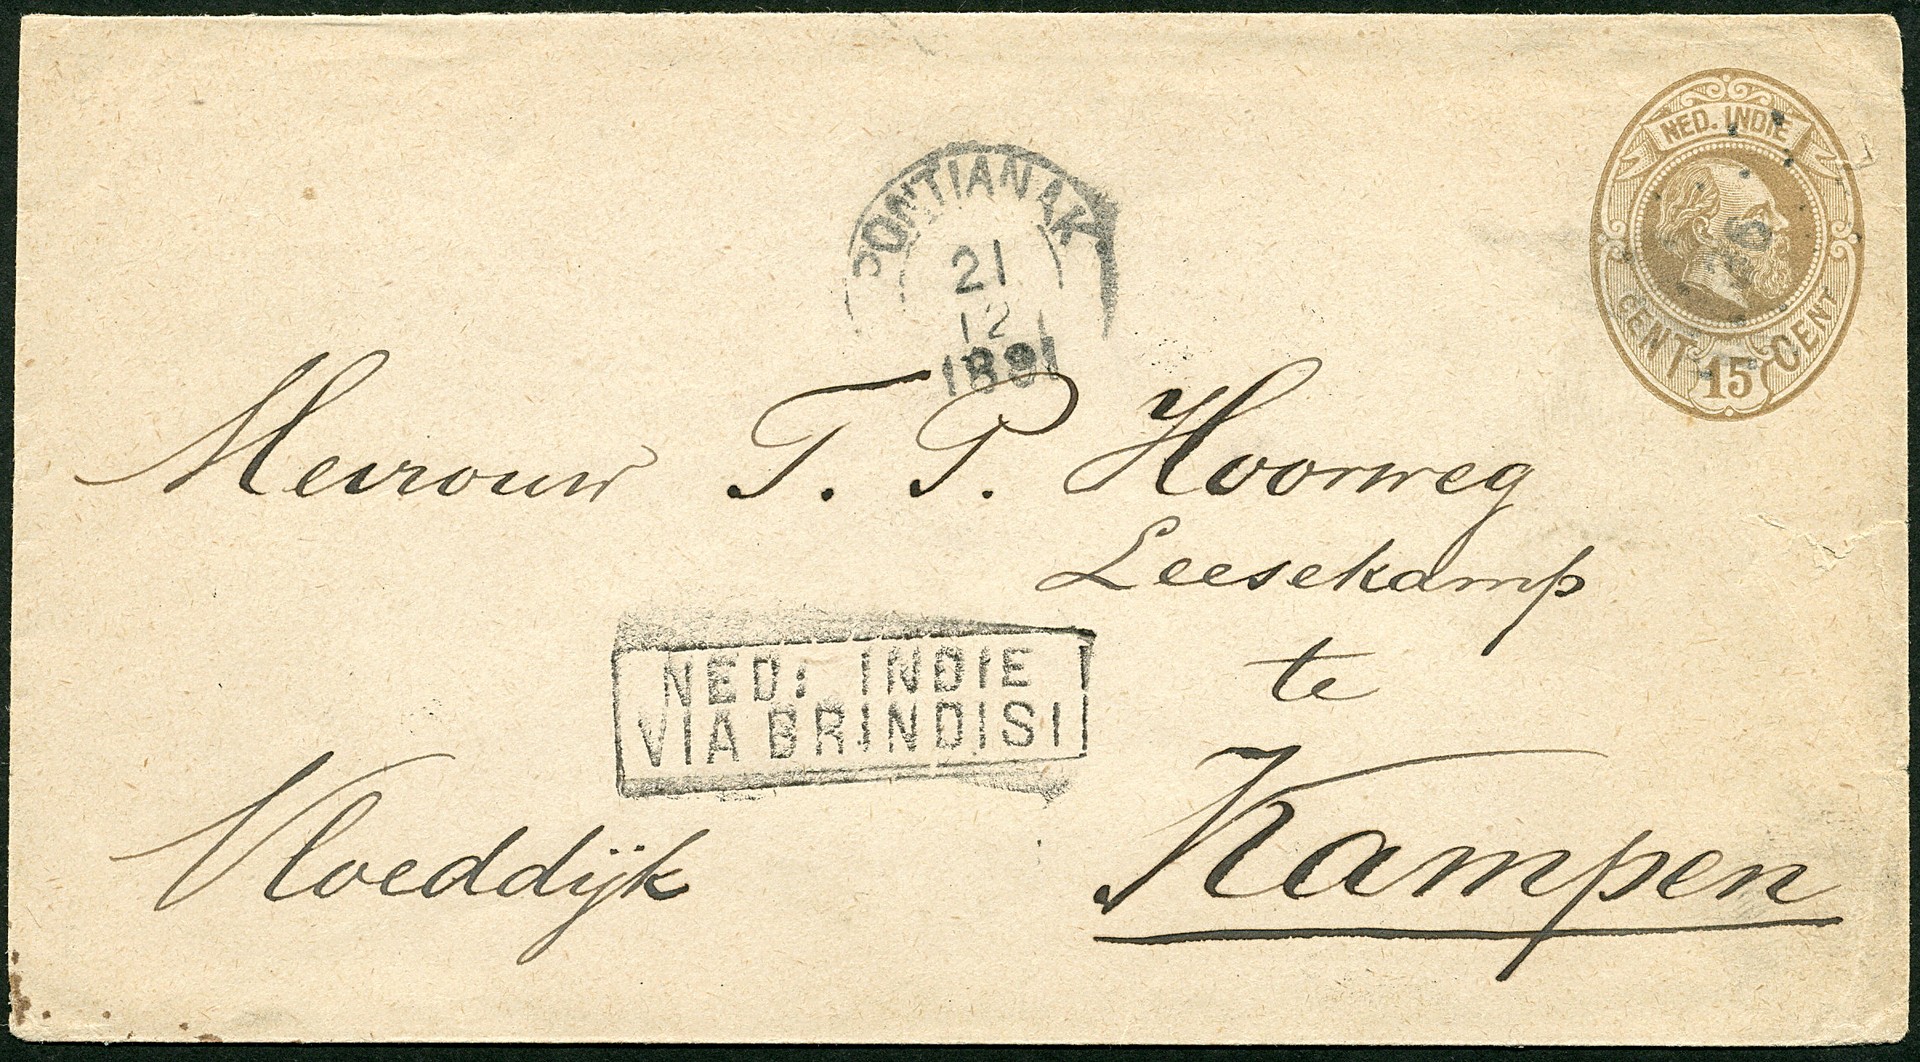 NED. INDIE
CENT 15 CENT
PONTIANAK
21
12
1891
Mevrouw T. P. Hoorweg
Leesekamp
te
NED: INDIE
VIA BRINDISI
Vloeddijk
Kampen